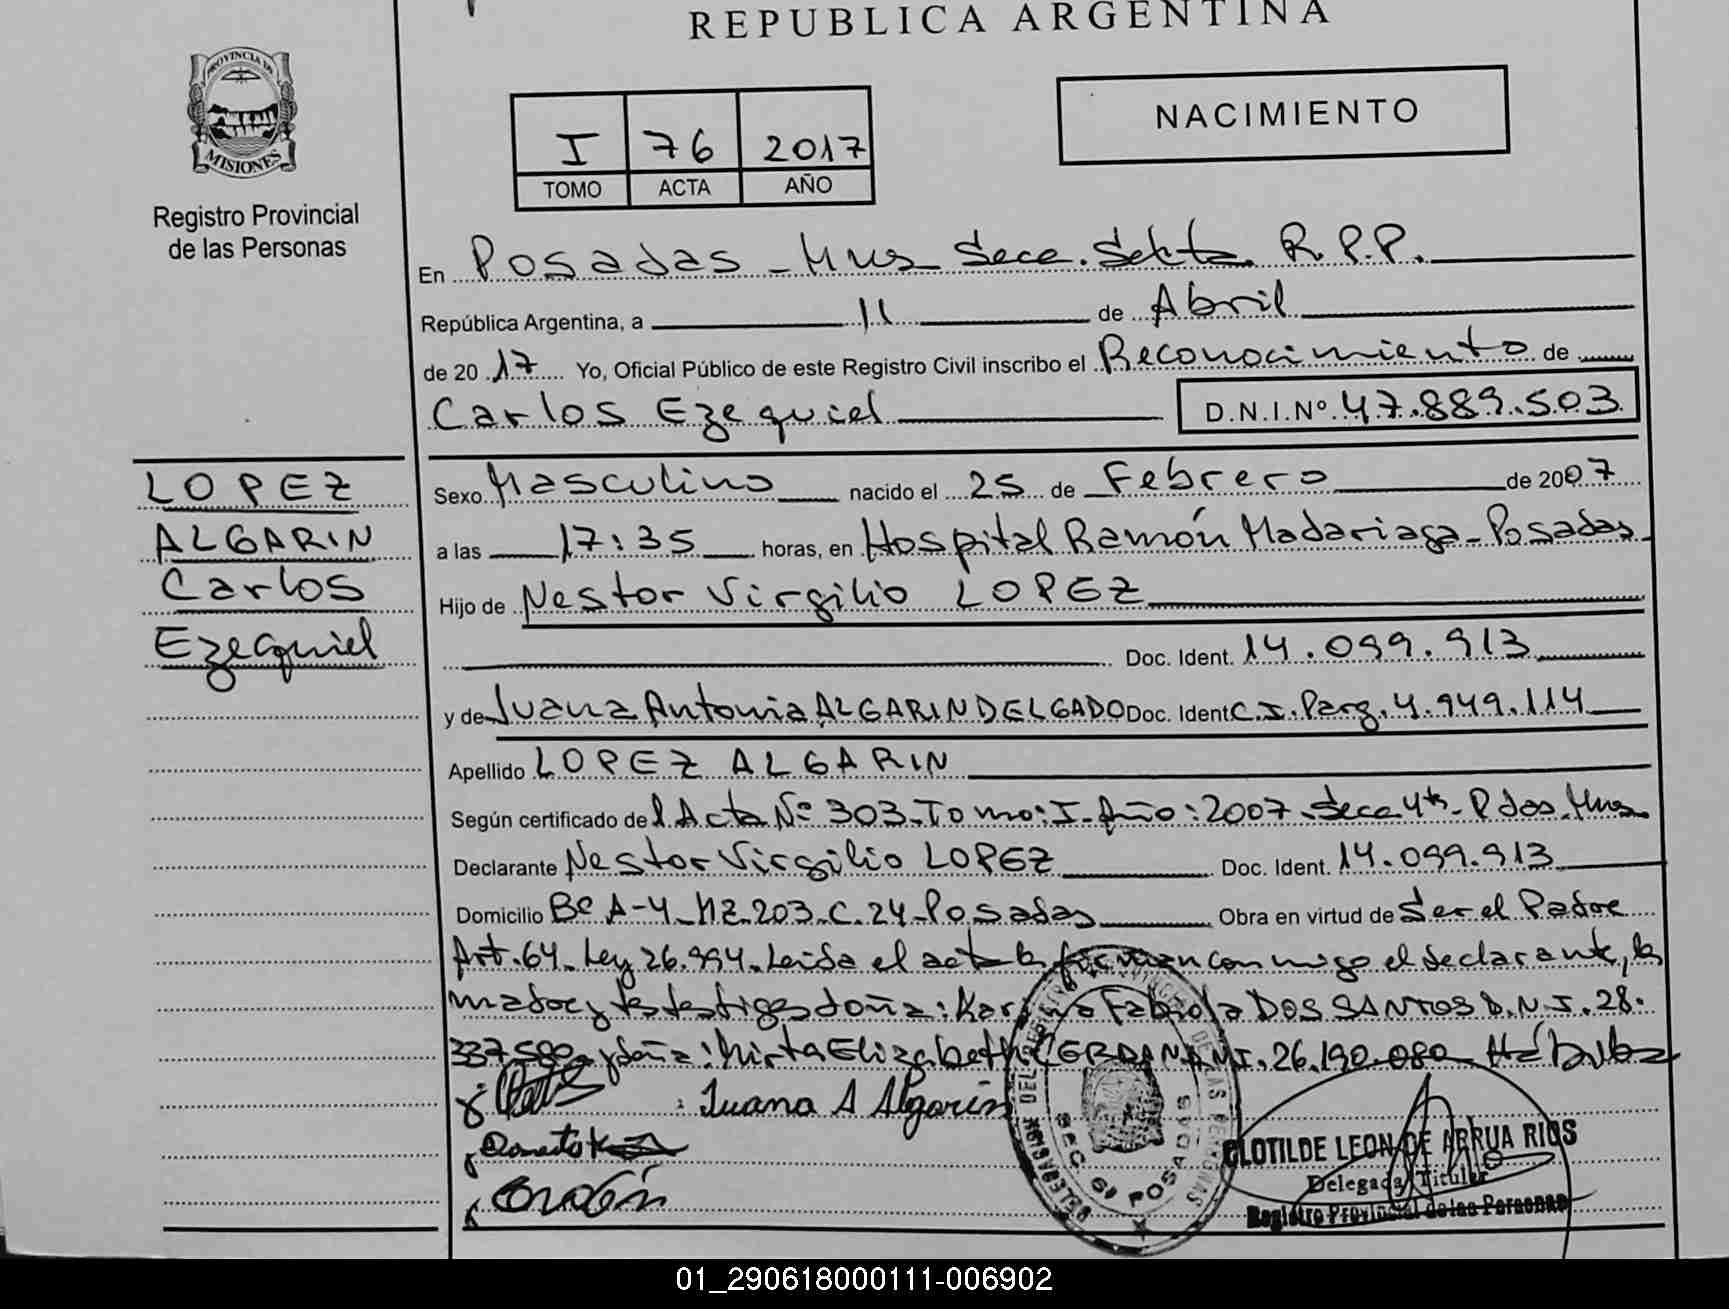 REPUBLICA ARGENTINA
PROVINCIA DE
MISIONES
Registro Provincial
de las Personas
I 76 2017
TOMO ACTA AÑO
NACIMIENTO
En Posadas - Mnes Secc. Sexta R.P.P.
República Argentina, a 11 de Abril
de 2017 Yo, Oficial Público de este Registro Civil inscribo el Reconocimiento de
Carlos Ezequiel D.N.I.Nº 47.889.503
LOPEZ
ALGARIN
Carlos
Ezequiel
Sexo Masculino nacido el 25 de Febrero de 2007
a las 17:35 horas, en Hospital Ramón Madariaga - Posadas
Hijo de Nestor Virgilio LOPEZ
Doc. Ident. 14.099.913
y de Juana Antonia ALGARIN DELGADO Doc. Ident C.I. Parg. 4.949.114
Apellido LOPEZ ALGARIN
Según certificado del Acta Nº 303 - Tomo: I - Año: 2007 - Secc 4ta - Pdas. Mnes
Declarante Nestor Virgilio LOPEZ Doc. Ident. 14.099.913
Domicilio Bº A-4 - MZ. 203 - C. 24 - Posadas Obra en virtud de Ser el Padre
Art. 64 - Ley 26.994 - Leída el acta la firman conmigo el declarante, la
madre y testestigos doña: Fabiola DOS SANTOS D.N.I. 28.
337.580 y doña: Mirta Elizabeth CERDAN 26.190.080
Juana A Algarin
DELEGACION DEL REGISTRO PROVINCIAL DE LAS PERSONAS
SEC. 6ª POSADAS
CLOTILDE LEON DE ARRUA RIOS
Delegada Titular
Registro Provincial de las Personas
01_290618000111-006902